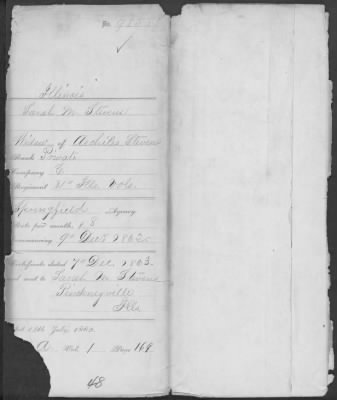 No.
Illinois
Sarah M Stevens
Widow of Archiles Stevens
Rank Private
Company C
Regiment 31st Ills Vols.
Springfield Agency
Rate per month, $8
Commencing 9th Dec. 1862
Certificate dated 7th Dec. 1863
and sent to Sarah M Stevens
Pinckneyville
Ills
Act 14th July 1862
A Vol. 1 Page 169
48